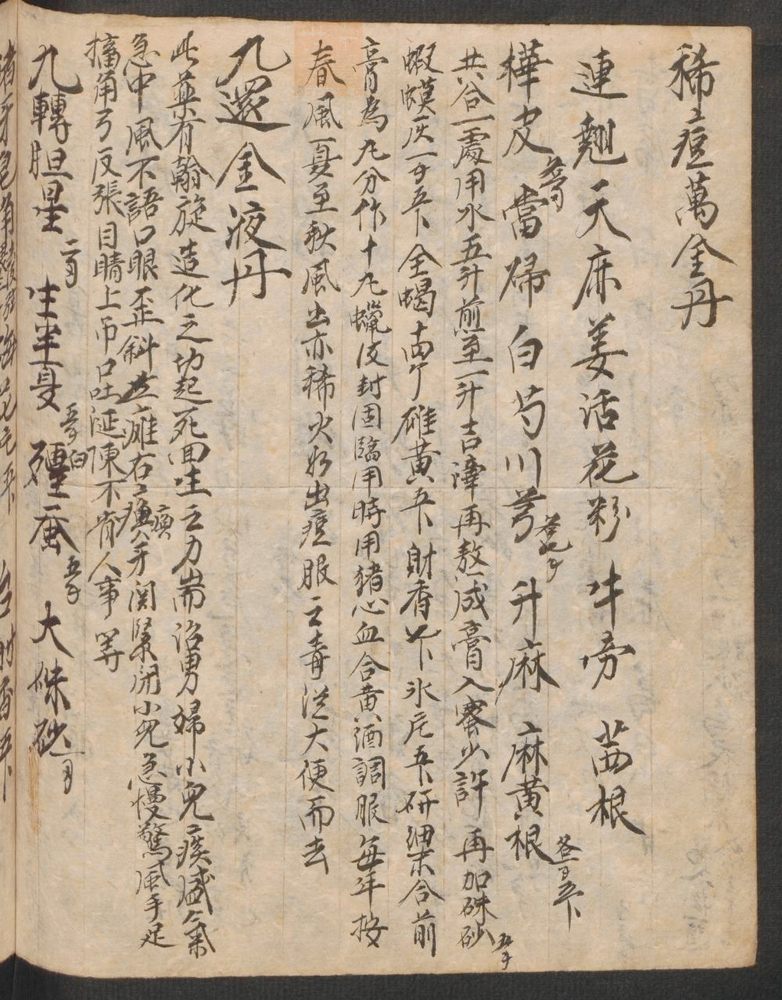 稀痘萬金丹
連翹天麻羌活花粉牛旁茜根
樺皮當歸白芍川芎升麻麻黃根
共合一處用水五升煎至一升去滓再熬成膏入蜜少許再加硃砂
蝦蟆灰一 全蝎 雄黃 香 冰片 研細末合前
膏為丸分作十丸蠟皮封固臨用時用豬心血合黃酒調服每年按
春風一夏至秋風出亦稀少 出痘服之毒從大便而去
九還金液丹
此藥有斡旋造化之功起死回生之力耑治男婦小兒痰盛氣
急中風不語口眼歪斜左癱右瘓牙関緊閉小兒急慢驚風手足
搐角弓反張目睛上吊口吐涎 不省人事等
九轉胆星 生半夏 殭蚕 大硃砂